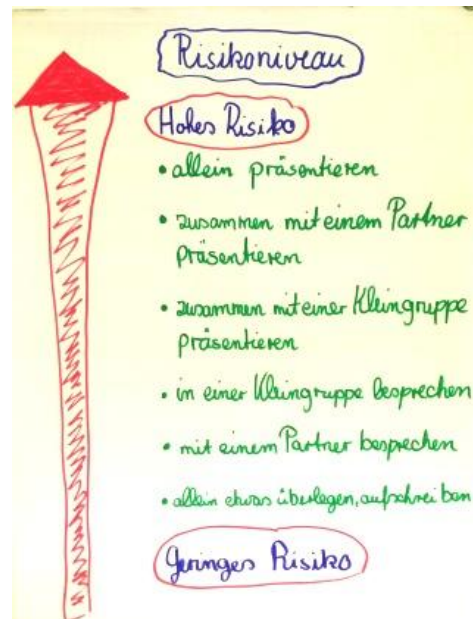 Risikoniveau
Hohes Risiko
• allein präsentieren
• zusammen mit einem Partner
präsentieren
• zusammen mit einer Kleingruppe
präsentieren
• in einer Kleingruppe besprechen
• mit einem Partner besprechen
• allein etwas überlegen, aufschreiben
Geringes Risiko